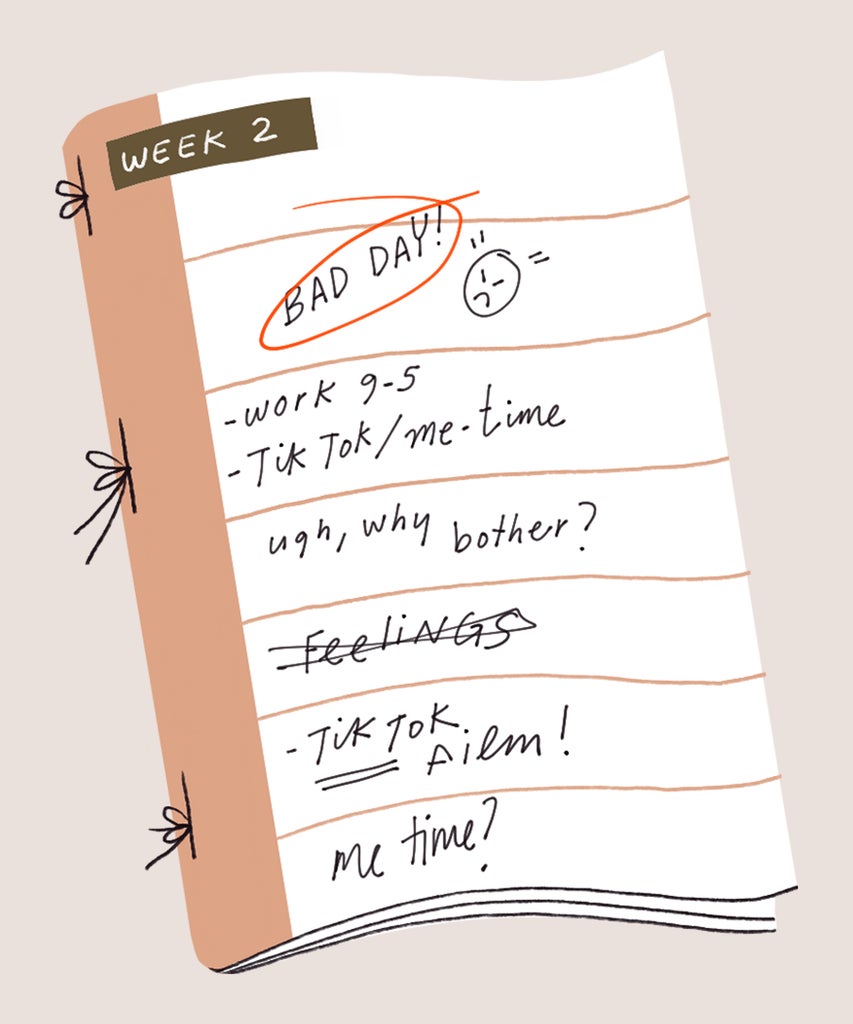 WEEK 2
BAD DAY!
-work 9-5
-TikTok/me-time
ugh, why bother?
FeeliNGS
-TikTok
me time?